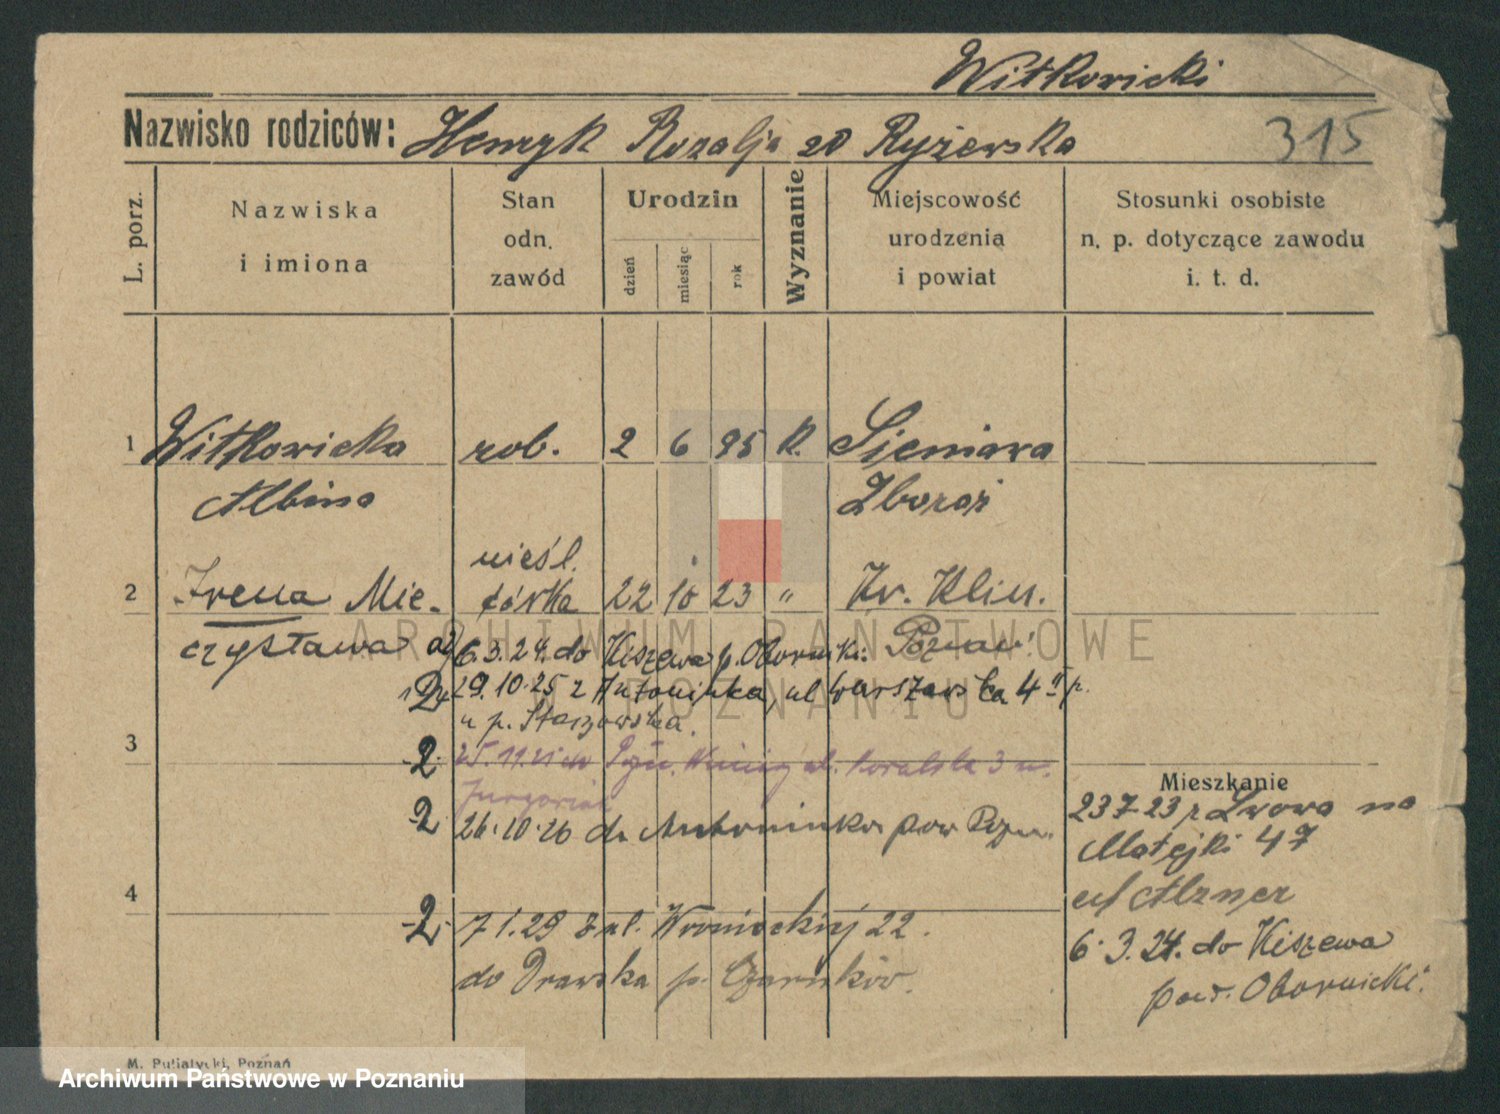 Witkowicki
Nazwisko rodziców: Henryk Rozalja zd Ryżewska
315
L. porz.
Nazwiska i imiona
Stan odn. zawód
Urodzin
dzień
miesiąc
rok
Wyznanie
Miejscowość urodzenia i powiat
Stosunki osobiste n. p. dotyczące zawodu i. t. d.
1 Witkowicka rob. 2 6 95 k. Sieniawa
Albina Zboraż
nieśl.
2 Irena Mie- córka 22 10 23 " Kr. Klin.
czysława Poznań
6.3.24. do Kiszewa p. Oborniki
29.10.25 z Antoninka, ul Warszawska 4 II p.
u p. Staszowska.
3
2 ul. 3 u.
2 26.10.26 do Antoninka pow Pozn.
Mieszkanie
23 7 23 z Lwowa na
Matejki 47
4
2 7 1.29 z ul. Wronieckiej 22.
do Drawska p. Czarnków.
6.3.24. do Kiszewa
pow. Obornicki.
M. Putiatycki, Poznań
ARCHIWUM PAŃSTWOWE
W POZNANIU
Archiwum Państwowe w Poznaniu